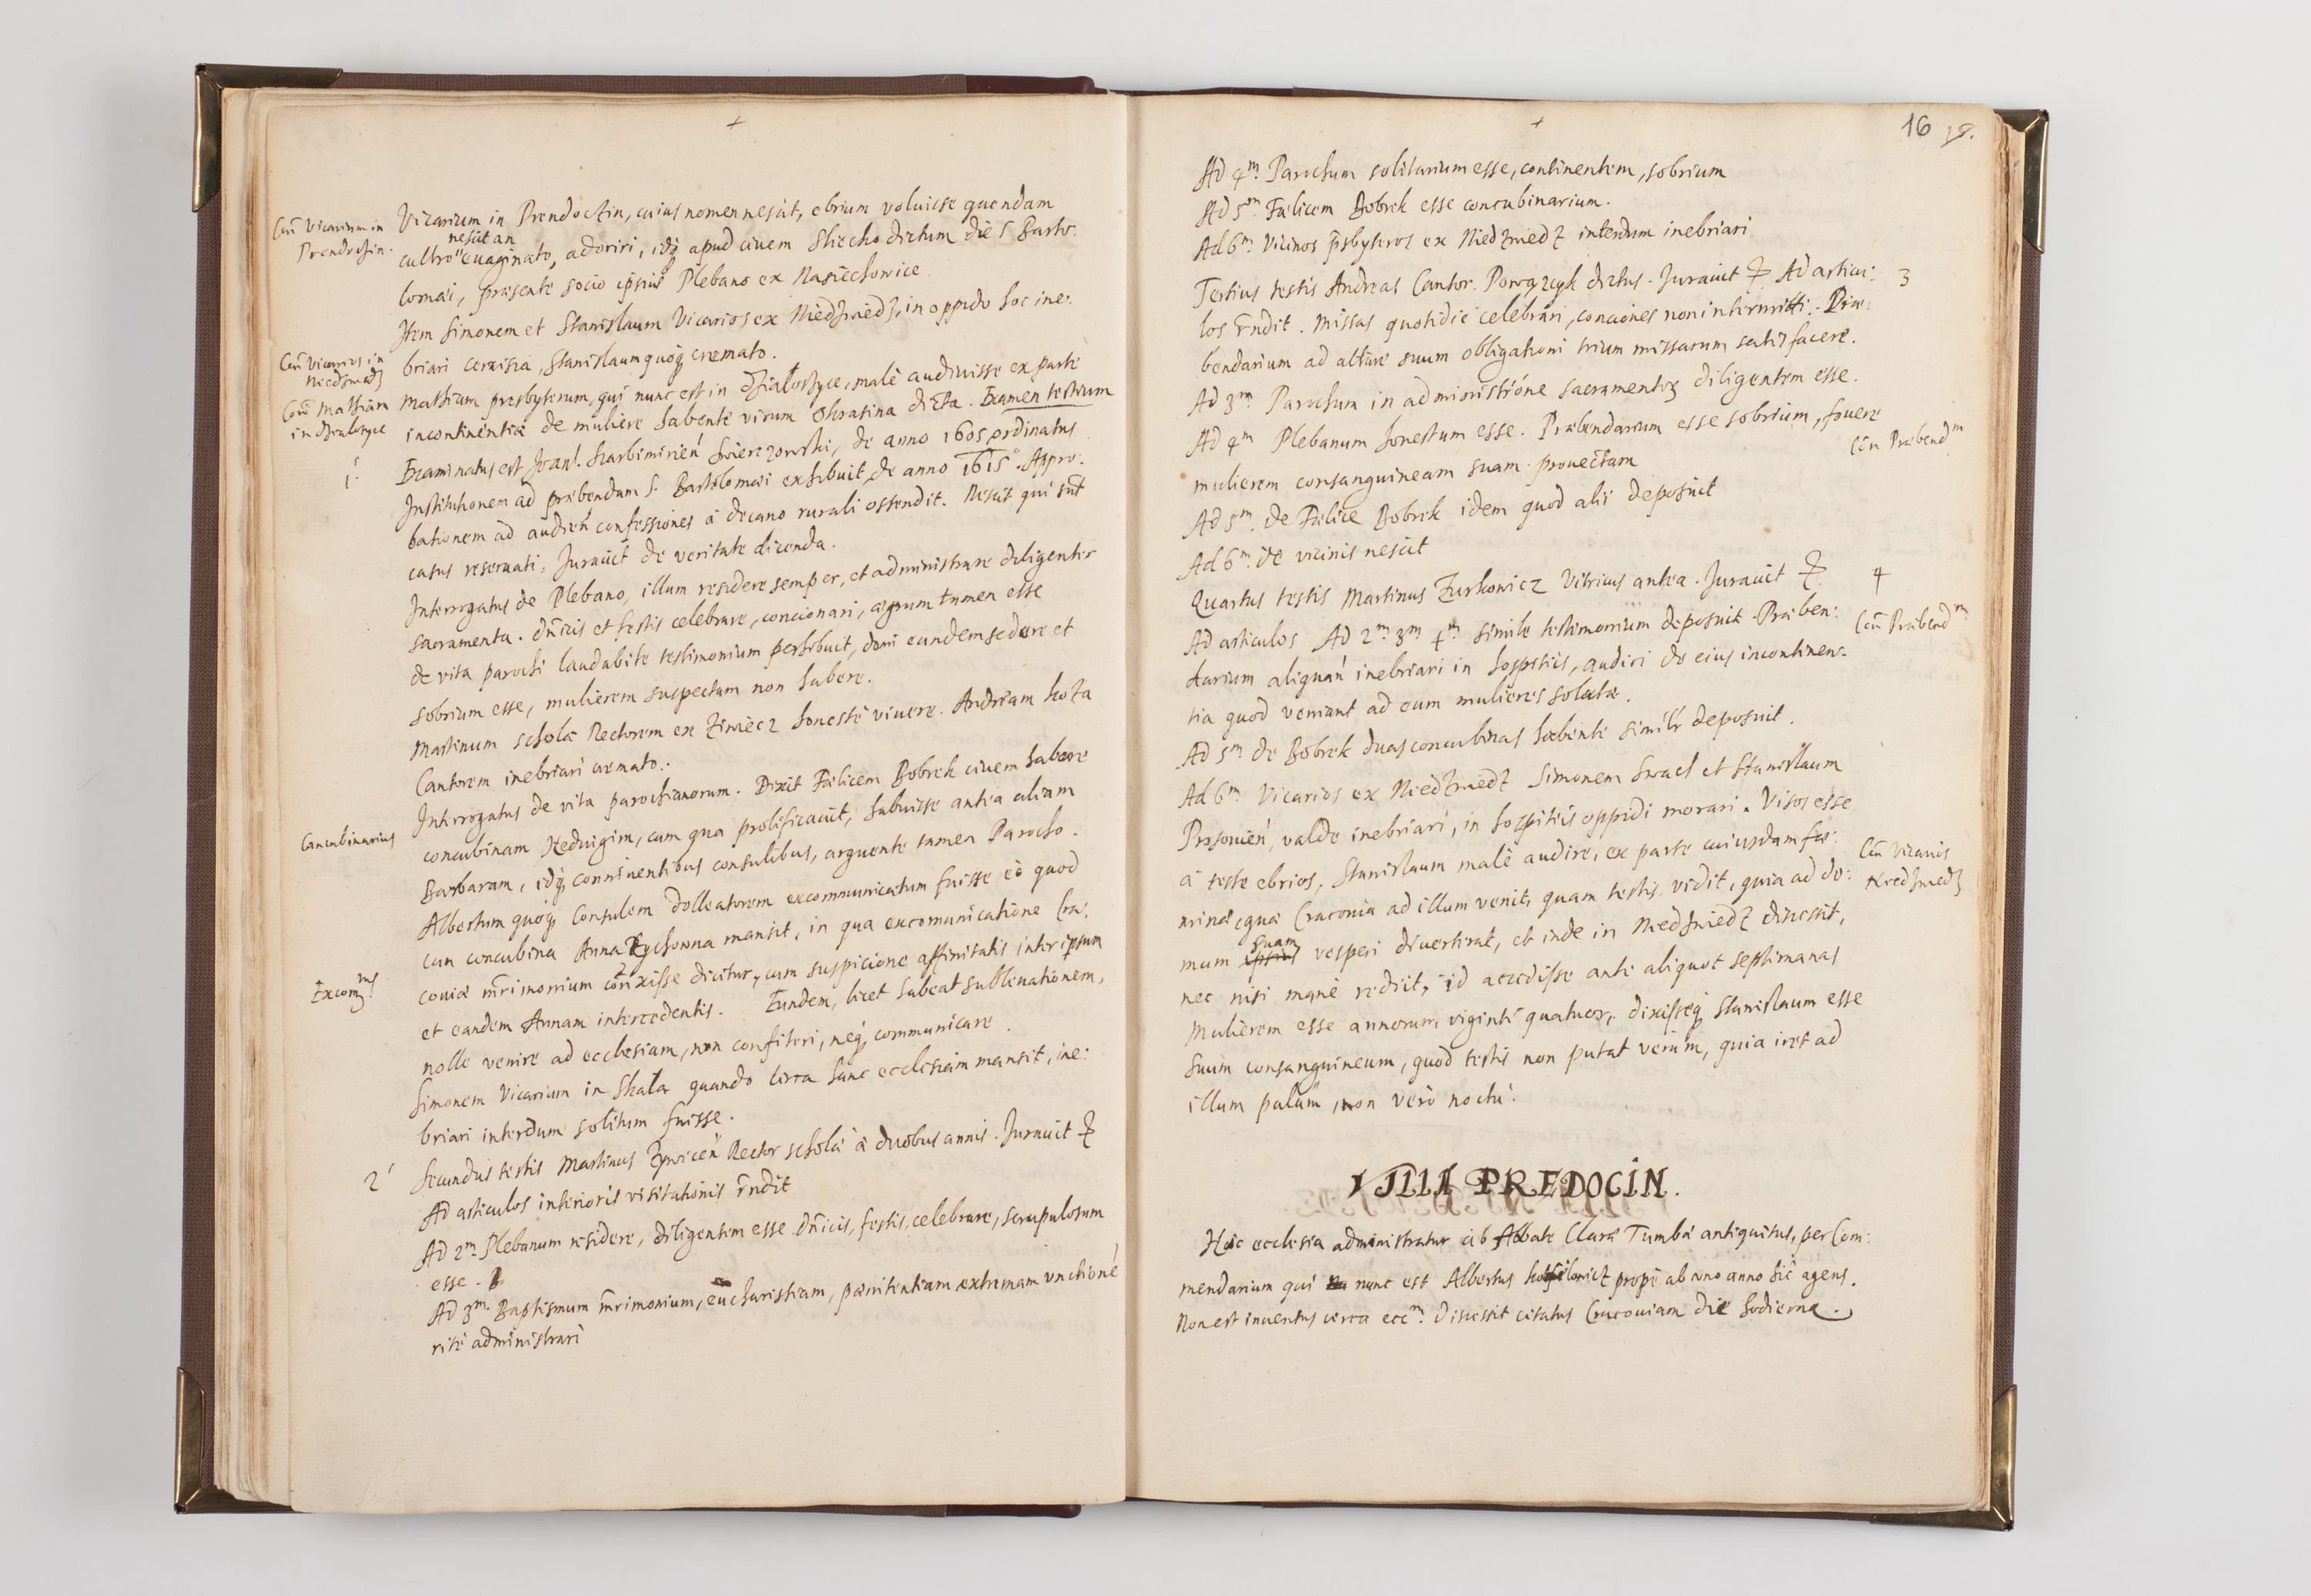 +
Cn̄ Vicarium in
Prendoczin.
Vicarium in Prendoctin, cuius nomen nescit, ebrium voluisse quendam
nescit an
cultro euaginato, adoriri, idq apud ciuem Sliecho dictum die S Barto:
lomæi, præsente socio ipsius Plebano ex Nasiechowice
Item Simonem et Stanislaum Vicarios ex Niedzwiedz, in oppido hoc ine:
Cn̄ Vicarios in
Niedzwiedz
briari ceruisia, Stanislaum quoq cremato.
Cn̄ Mathiam
in
Mathiam presbyterum, qui nunc est in malè audiuisse ex parte
incontinentiæ de muliere habente virum Ohrasina dicta. Examen testium
1.
Examinatus est Joan. Skarbimirien̄ Swierczowski, de anno 1605 ordinatus
Institutionem ad præbendam S. Bartolomæi exhibuit de anno 1615. Appro:
bationem ad audien̄ confessiones à decano rurali ostendit. Nescit qui sūt
casus reseruati, Jurauit de veritate dicenda.
Interrogatus de Plebano, illum residere semper, et administrare diligenter
sacramenta. dn̄icis et festis celebrare, concionari, ægrum tamen esse
de vita parochi laudabile testimonium perhibuit, domi eundem sedere et
sobrium esse, mulierem suspectam non habere.
Martinum scholæ Rectorem ex Ziwiecz honestè viuere. Andream kota
Cantorem inebriari cremato.
Interrogatus de vita parochianorum. Dixit Fælicem Bobrek ciuem habere
Concubinarius
concubinam Heduigim, cum qua prolificauit, habuisse antea aliam
Barbaram, idq conniuentibus consulibus, arguente tamen Parocho.
Albertum quoq Consulem Dolleatorem excommunicatum fuisse eò quod
cum concubina Anna Rychowna mansit, in qua excomunicatione Cra:
Excom͞us
couiæ m̄rimonium cōtraxisse dicitur, cum suspicione affinitatis inter ipsum
et eandem Annam intercedentis. Eundem, licet habeat subleuationem,
nolle venire ad ecclesiam, non confiteri, neq communicare.
Simonem Vicarium in Skala quando circa hanc ecclesiam mansit, ine:
briari interdum solitum fuisse.
2
Secundus testis Martinus Zywicen̄ Rector scholæ à duobus annis. Jurauit
Ad articulos interioris visitationis rn̄dit
Ad 2m. Plebanum residere, diligentem esse dn̄icis, festis, celebrare, scrupulosum
esse.
Ad 3m. Baptismum m̄rimonium, eucharistiam, pænitentiam extremam vnctionē
ritè administrari
+
16 18.
Ad 4m. Parochum solitarium esse, continentem, sobrium
Ad 5m. Fælicem Bobrek esse concubinarium.
Ad 6m. Vicinos p̄sbyteros ex Niedzwiedz interdum inebriari
Tertius testis Andreas Cantor. dictus. Jurauit Ad articu: 3
los rn̄dit. Missas quotidie celebrari, conciones non intermitti. Præ:
bendarium ad altare suum obligationi trium missarum satisfacere.
Ad 3m. Parochum in administrōne sacramentoȝ diligentem esse.
Ad 4m Plebanum honestum esse. Præbendarium esse sobrium, fouere
Cn̄ Præbendm
mulierem consanguineam suam prouectam
Ad 5m. de Fælice Bobrek idem quod alii deposuit
Ad 6m. de vicinis nescit
Quartus testis Martinus Zurkowicz Vitricus antea. Jurauit 4
Ad articulos Ad 2m 3m 4m simile testimonium deposuit. Præben:
Cn̄ Præbendm
darium aliquan̄ inebriari in hospitiis, audiri de eius incontinen:
tia quod veniant ad eum mulieres solutæ.
Ad 5m de Bobrek duas concubinas habente simil̄r deposuit.
Ad 6m. Vicarios ex Niedzwiedz Simonem Swach et Stanislaum
Prosouien̄, valde inebriari, in hospitiis oppidi morari. Visos esse
à teste ebrios, Stanislaum malè audire, ex parte cuiusdam fæ:
Cn̄ Vicarios
Niedzwiedz
minæ quæ Cracouia ad illum venit, quam testis vidit, quia ad do:
suam
mum ipsius vesperi diuerterat, et inde in Niedzwiedz discessit,
nec nisi manè rediit, id accidisse ante aliquot septimanas
Mulierem esse annorum viginti quatuor, dixisseq Stanislaum esse
suum consanguineum, quod testis non putat verum, quia iret ad
illum palàm, non verò noctu.
VILLA PREDOCIN.
Hæc ecclesia administratur ab Abbate Claræ Tumbæ antiquitus, per Com:
mendarium qui nunc est Albertus propè ab vno anno hîc agens.
Non est inuentus circa eccm. Discessit citatus Cracouiam die hodierna.